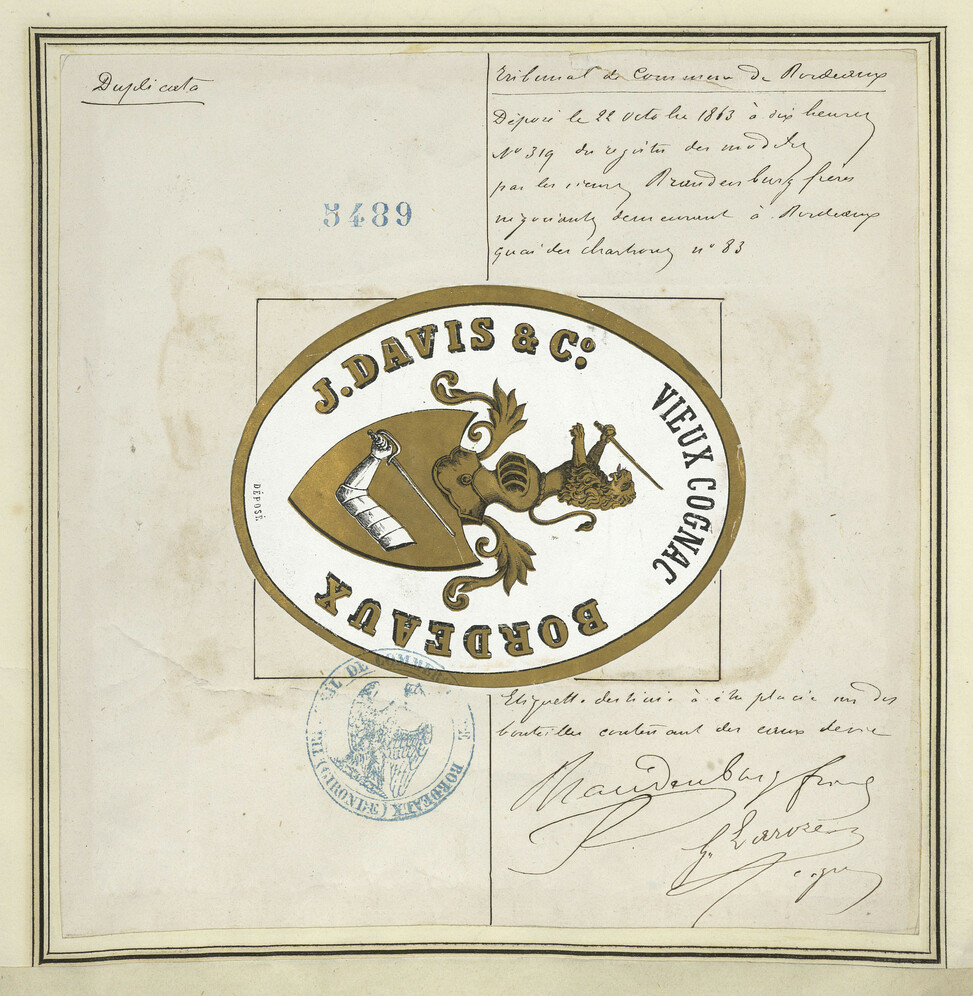 Duplicata
Tribunal de Commerce de Bordeaux
Déposé le 22 octobre 1863 à dix heures
N° 319 du registre des modèles
par les sieurs Brandenburg frères
négociants demeurant à Bordeaux
quai des chartrons n° 83
5489
J. DAVIS & Cº.
VIEUX COGNAC
DÉPOSÉ
BORDEAUX
TRIBUNAL DE COMMERCE DE BORDEAUX (GIRONDE)
Etiquette destinée à être placée sur des
bouteilles contenant des eaux de vie
Brandenburg frères